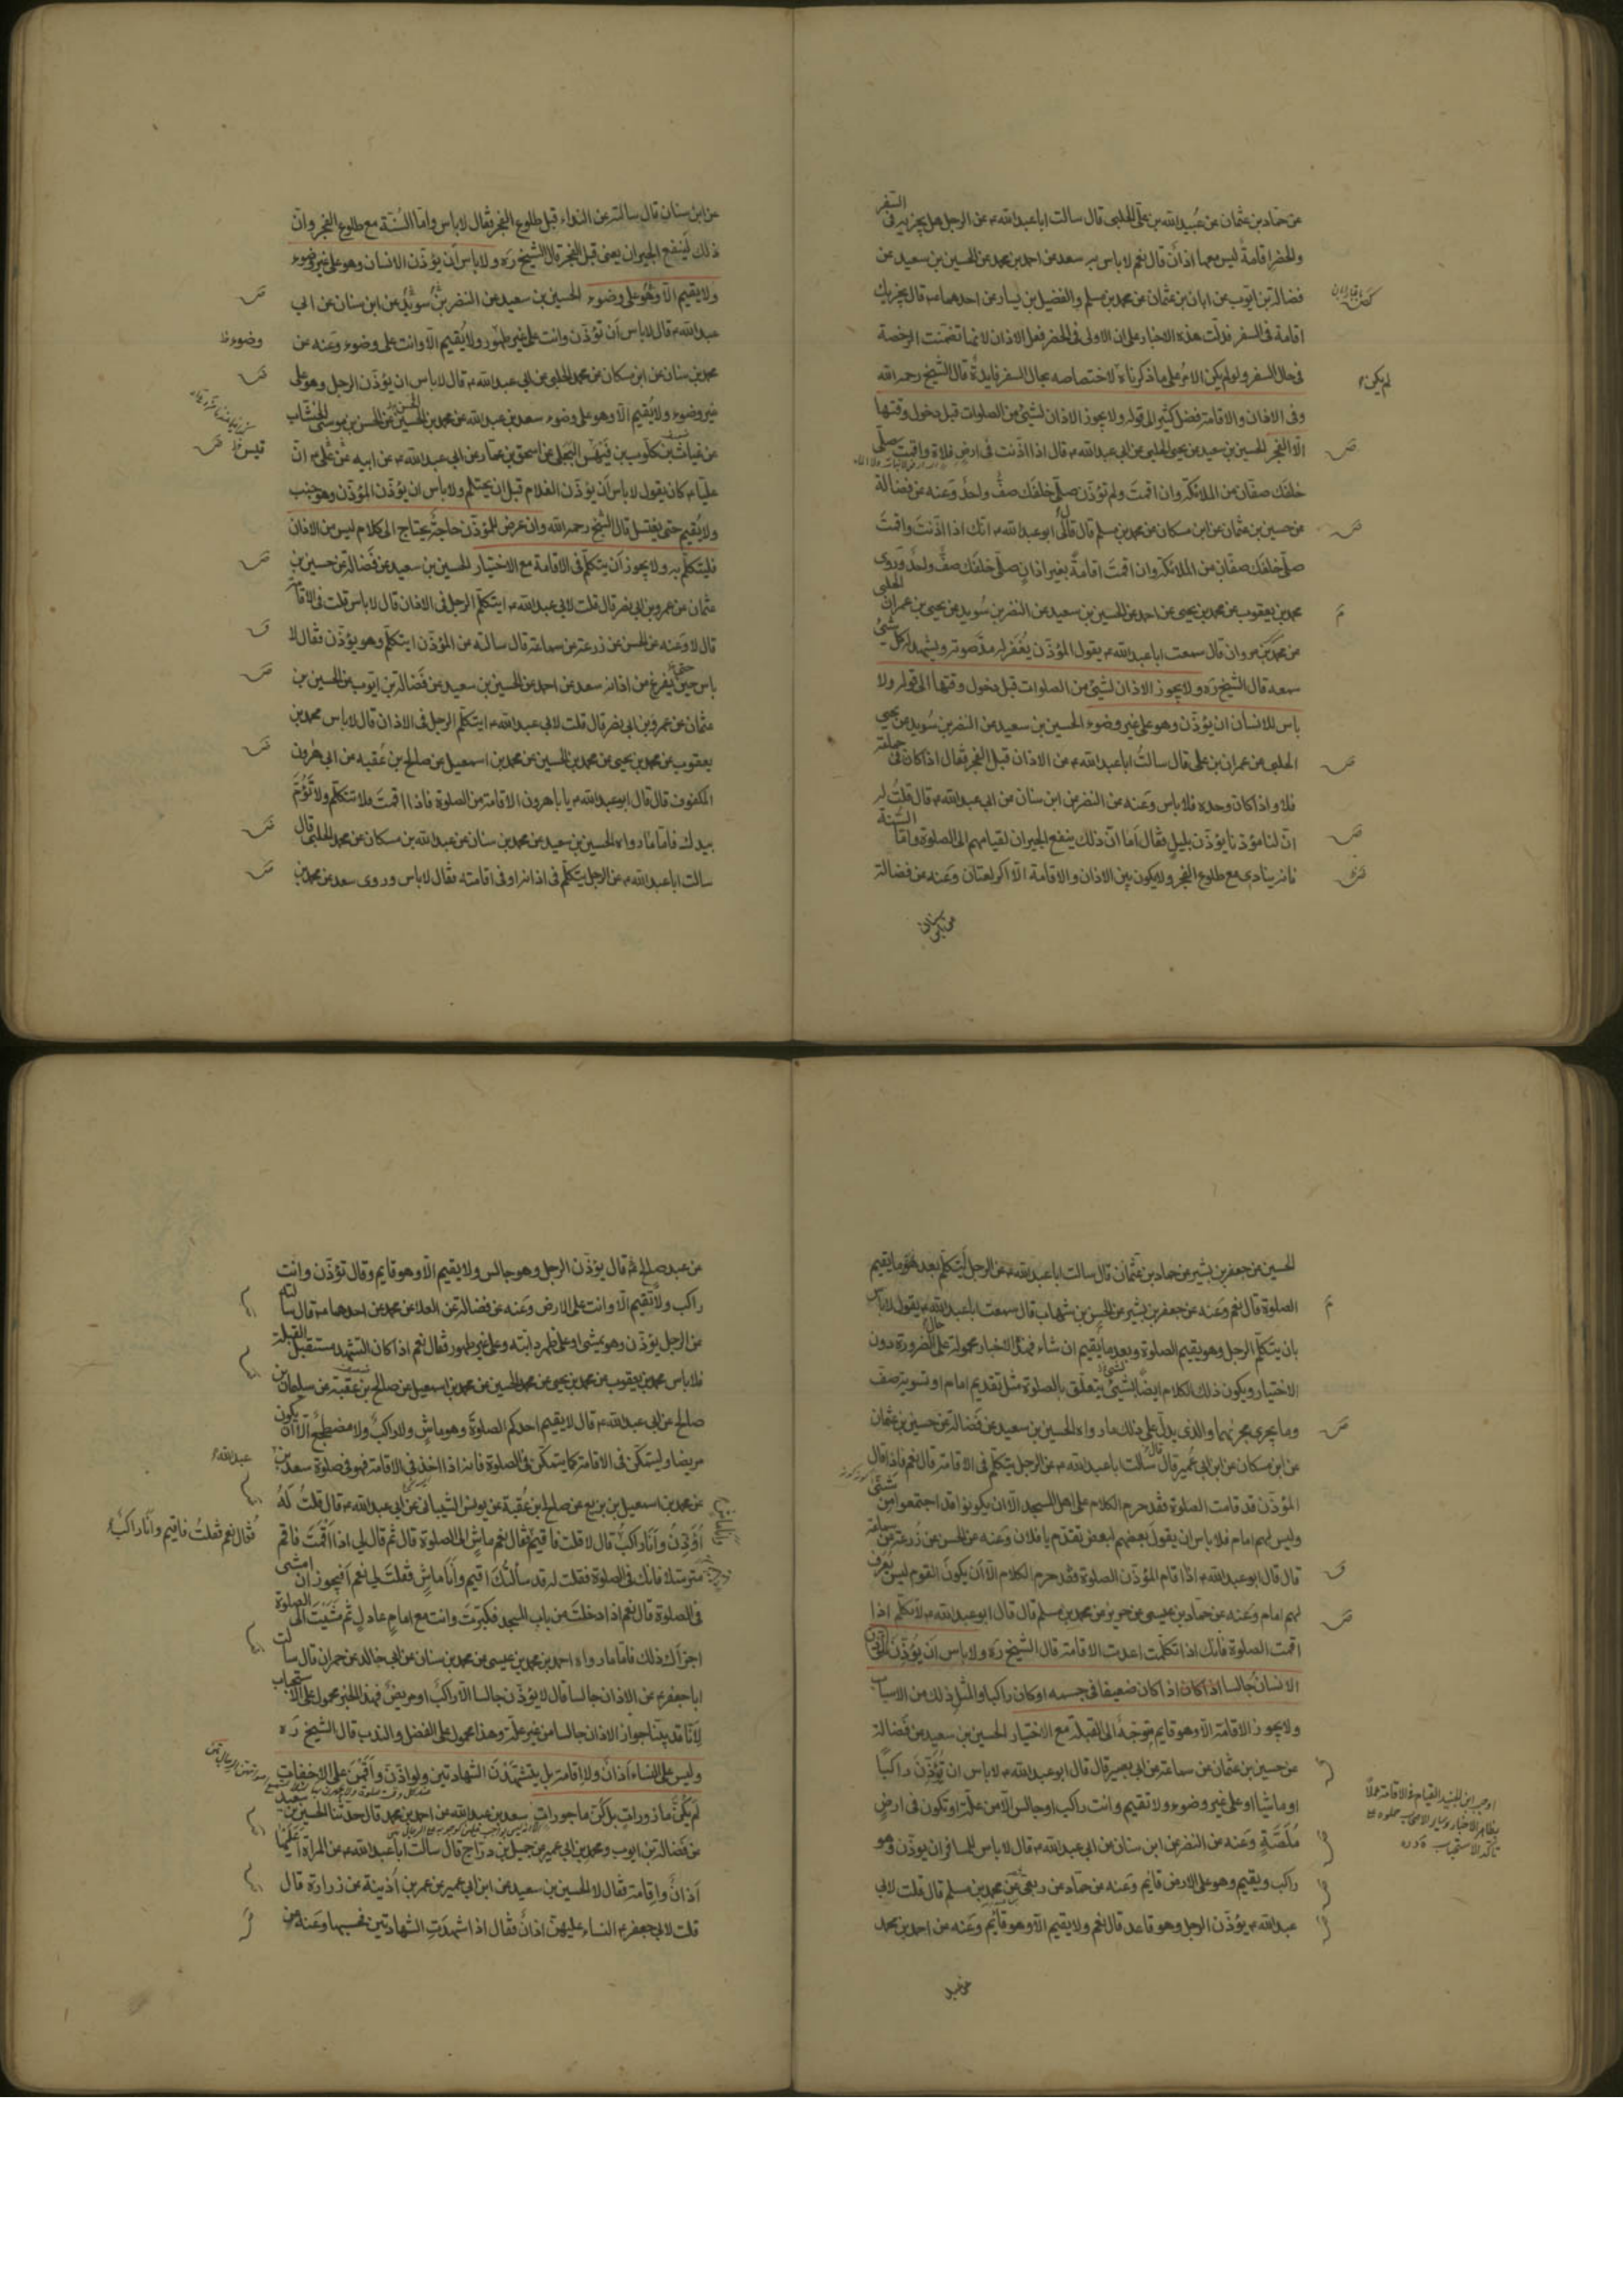 عن حماد بن عثمان عن عبيد الله بن على الحلبى قال سالت ابا عبد الله ع عن الرجل هل يجزيه فى السفر
والحضر اقامة ليس معها اذان قال نعم لا باس به سعد عن احمد بن محمد عن الحسين بن سعيد عن
فضالة بن ايوب عن ابان بن عثمان عن محمد بن مسلم والفضيل بن يسار عن احدهما ع قال يجزيك
اقامة فى السفر فدلت هذه الاخبار على ان الاولى فى الحضر فعل الاذان لانها تضمنت الرخصة
فى حال السفر ولو لم يكن الامر على ما ذكرناه لاختصاصه بحال السفر فايدة قال الشيخ رحمه الله
لم يكن
وفى الاذان والاقامة فضل كثير الى قوله ولا يجوز الاذان لشىء من الصلوات قبل دخول وقتها
الا الفجر الحسين بن سعيد عن يحيى الحلبى عن ابى عبد الله ع قال اذا اذنت فى ارض فلاة واقمت صلى
خلفك صفان من الملائكة وان اقمت ولم تؤذن صلى خلفك صف واحد وعنه عن فضالة
عن حسين بن عثمان عن ابن مسكان عن محمد بن مسلم قال قال لى ابو عبد الله ع انك اذا اذنت واقمت
صلى خلفك صفان من الملائكة وان اقمت اقامة بغير اذان صلى خلفك صف واحد وروى
محمد بن يعقوب عن محمد بن يحيى عن احمد عن الحسين بن سعيد عن النضر بن سويد عن يحيى بن عمران الحلبى
عن محمد بن مروان قال سمعت ابا عبد الله ع يقول المؤذن يغفر له مد صوته ويشهد له كل شىء
سمعه قال الشيخ ره ولا يجوز الاذان لشىء من الصلوات قبل دخول وقتها الى قوله ولا
باس للانسان ان يؤذن وهو على غير وضوء الحسين بن سعيد عن النضر بن سويد عن يحيى
الحلبى عن عمران بن على قال سالت ابا عبد الله ع عن الاذان قبل الفجر فقال اذا كان فى جماعة
فلا واذا كان وحده فلا باس وعنه عن النضر عن ابن سنان عن ابى عبد الله ع قال قلت له
ان لنا مؤذنا يؤذن بليل فقال اما ان ذلك ينفع الجيران لقيامهم الى الصلوة واما السنة
فانه ينادى مع طلوع الفجر ولا يكون بين الاذان والاقامة الا الركعتان وعنه عن فضالة
عن ابن سنان
عن ابن سنان قال سالته عن النداء قبل طلوع الفجر فقال لا باس واما السنة مع طلوع الفجر وان
ذلك لينفع الجيران يعنى قبل الفجر قال الشيخ ره ولا باس ان يؤذن الانسان وهو على غير وضوء
ولا يقيم الا وهو على وضوء الحسين بن سعيد عن النضر بن سويد عن ابن سنان عن ابى
عبد الله ع قال لا باس ان تؤذن وانت على غير طهور ولا يقيم الا وانت على وضوء وعنه عن
وضوء
محمد بن سنان عن ابن مسكان عن محمد الحلبى عن ابى عبد الله ع قال لا باس ان يؤذن الرجل وهو على
غير وضوء ولا يقيم الا وهو على وضوء سعد بن عبد الله عن محمد بن الحسين عن الحسن بن موسى الخشاب
عن غياث بن كلوب بن فيهس البجلى عن اسحق بن عمار عن ابى عبد الله ع عن ابيه عن على ع ان
عليا ع كان يقول لا باس ان يؤذن الغلام قبل ان يحتلم ولا باس ان يؤذن المؤذن وهو جنب
ولا يقيم حتى يغتسل قال الشيخ رحمه الله وان عرض للمؤذن حاجة يحتاج الى كلام ليس من الاذان
فليتكلم به ولا يجوز ان يتكلم فى الاقامة مع الاختيار الحسين بن سعيد عن فضالة عن حسين بن
عثمان عن عمرو بن ابى نصر قال قلت لابى عبد الله ع ايتكلم الرجل فى الاذان قال لا باس قلت فى الاقامة
قال لا وعنه عن الحسن عن زرعة عن سماعة قال سالته عن المؤذن ايتكلم وهو يؤذن فقال لا
باس حين يفرغ من اذانه سعد عن احمد عن الحسين بن سعيد عن فضالة بن ايوب عن الحسين بن
عثمان عن عمرو بن ابى نصر قال قلت لابى عبد الله ع ايتكلم الرجل فى الاذان قال لا باس محمد بن
يعقوب عن محمد بن يحيى عن محمد بن الحسين عن محمد بن اسمعيل عن صالح بن عقبه عن ابى هرون
المكفوف قال قال ابو عبد الله ع يا با هرون الاقامة من الصلوة فاذا اقمت فلا تتكلم ولا تؤم
بيدك فاما ما رواه الحسين بن سعيد عن محمد بن سنان عن عبد الله بن مسكان عن محمد الحلبى قال
سالت ابا عبد الله ع عن الرجل يتكلم فى اذانه او فى اقامته فقال لا باس وروى سعد عن محمد بن
الحسين عن جعفر بن بشير عن حماد بن عثمان قال سالت ابا عبد الله ع عن الرجل ايتكلم بعد ما يقيم
الصلوة قال نعم وعنه عن جعفر بن بشير عن الحسن بن شهاب قال سمعت ابا عبد الله ع يقول لا باس
بان يتكلم الرجل وهو يقيم الصلوة وبعد ما يقيم ان شاء فهذه الاخبار محمولة على حال الضرورة دون
الاختيار ويكون ذلك الكلام ايضا لشىء يتعلق بالصلوة مثل تقديم امام او تسوية صف
وما يجرى مجريهما والذى يدل على ذلك ما رواه الحسين بن سعيد عن فضالة عن حسين بن عثمان
عن ابن مسكان عن ابن ابى عمير قال سالت ابا عبد الله ع عن الرجل يتكلم فى الاقامة قال نعم فاذا قال
المؤذن قد قامت الصلوة فقد حرم الكلام على اهل المسجد الا ان يكونوا قد اجتمعوا من شتى
وليس لهم امام فلا باس ان يقول بعضهم لبعض تقدم يا فلان وعنه عن الحسن عن زرعة عن سماعة
قال قال ابو عبد الله ع اذا اقام المؤذن الصلوة فقد حرم الكلام الا ان يكون القوم ليس يعرف
لهم امام وعنه عن حماد بن عيسى عن حريز عن محمد بن مسلم قال قال ابو عبد الله ع لا تتكلم اذا
اقمت الصلوة فانك اذا تكلمت اعدت الاقامة قال الشيخ ره ولا باس ان يؤذن
الانسان جالسا اذا كان ضعيفا فى جسمه او كان راكبا او لمثل ذلك من الاسباب
ولا يجوز الاقامة الا وهو قايم متوجه الى القبلة مع الاختيار الحسين بن سعيد عن فضالة
عن حسين بن عثمان عن سماعة عن ابى بصير قال قال ابو عبد الله ع لا باس ان تؤذن راكبا
او ماشيا او على غير وضوء ولا تقيم وانت راكب او جالس الا من علة او تكون فى ارض
ملصة وعنه عن النضر عن ابن سنان عن ابى عبد الله ع قال لا باس للمسافر ان يؤذن وهو
اوجب ابن الجنيد القيام فى الاقامة عملا
بظاهر الاخبار وساير الاصحاب حملوه على
تاكد الاستحباب
راكب ويقيم وهو على الارض قايم وعنه عن حماد عن ربعى عن محمد بن مسلم قال قلت لابى
عبد الله ع يؤذن الرجل وهو قاعد قال نعم ولا يقيم الا وهو قايم وعنه عن احمد بن محمد
عن عبد
عن عبد صالح ع قال يؤذن الرجل وهو جالس ولا يقيم الا وهو قايم وقال تؤذن وانت
راكب ولا تقيم الا وانت على الارض وعنه عن فضالة عن العلا عن محمد عن احدهما ع قال سالته
عن الرجل يؤذن وهو يمشى او على ظهر دابته وعلى غير طهور فقال نعم اذا كان التشهد مستقبل القبلة
فلا باس محمد بن يعقوب عن محمد بن يحيى عن محمد بن الحسين عن محمد بن اسمعيل عن صالح بن عقبة عن سليمان بن
صالح عن ابى عبد الله ع قال لا يقيم احدكم الصلوة وهو ماش ولا راكب ولا مضطجع الا ان يكون
مريضا وليتمكن فى الاقامة كما يتمكن فى الصلوة فانه اذا اخذ فى الاقامة فهو فى صلوة سعد بن
عبد الله
عن محمد بن اسمعيل بن بزيع عن صالح بن عقبة عن يونس الشيبانى عن ابى عبد الله ع قال قلت له
اؤذن وانا راكب قال لا قلت فاقيم وانا ماش فقال نعم ماش الى الصلوة قال ثم قال لى اذا اقمت فاقم
فقال نعم فقلت فاقيم وانا راكب
مترسلا فانك فى الصلوة فقلت له قد سالتك اقيم وانا ماش فقلت لى نعم افيجوز ان امشى
فى الصلوة قال نعم اذا دخلت من باب المسجد فكبرت وانت مع امام عادل ثم مشيت الى الصلوة
اجزاك ذلك فاما ما رواه احمد بن محمد بن عيسى عن محمد بن سنان عن ابى خالد عن حمران قال سالت
ابا جعفر ع عن الاذان جالسا قال لا يؤذن جالسا الا راكب او مريض فهذا الخبر محمول على الاستحباب
لانا قد بينا جواز الاذان جالسا من غير علة وهذا محمول على الفضل والندب قال الشيخ ره
وليس على النساء اذان ولا اقامة بل يتشهدن الشهادتين ولو اذن واقمن على الاخفات
لم يكن مازورات بل كن ماجورات سعد بن عبد الله عن احمد بن محمد قال حدثنا الحسين بن سعيد
عن فضالة بن ايوب ومحمد بن ابى عمير عن جميل بن دراج قال سالت ابا عبد الله ع عن المراة اعليها
اذان واقامة فقال لا الحسين بن سعيد عن ابن ابى عمير عن عمر بن اذينة عن زرارة قال
قلت لابى جعفر ع النساء عليهن اذان فقال اذا شهدت الشهادتين فحسبها وعنه عن